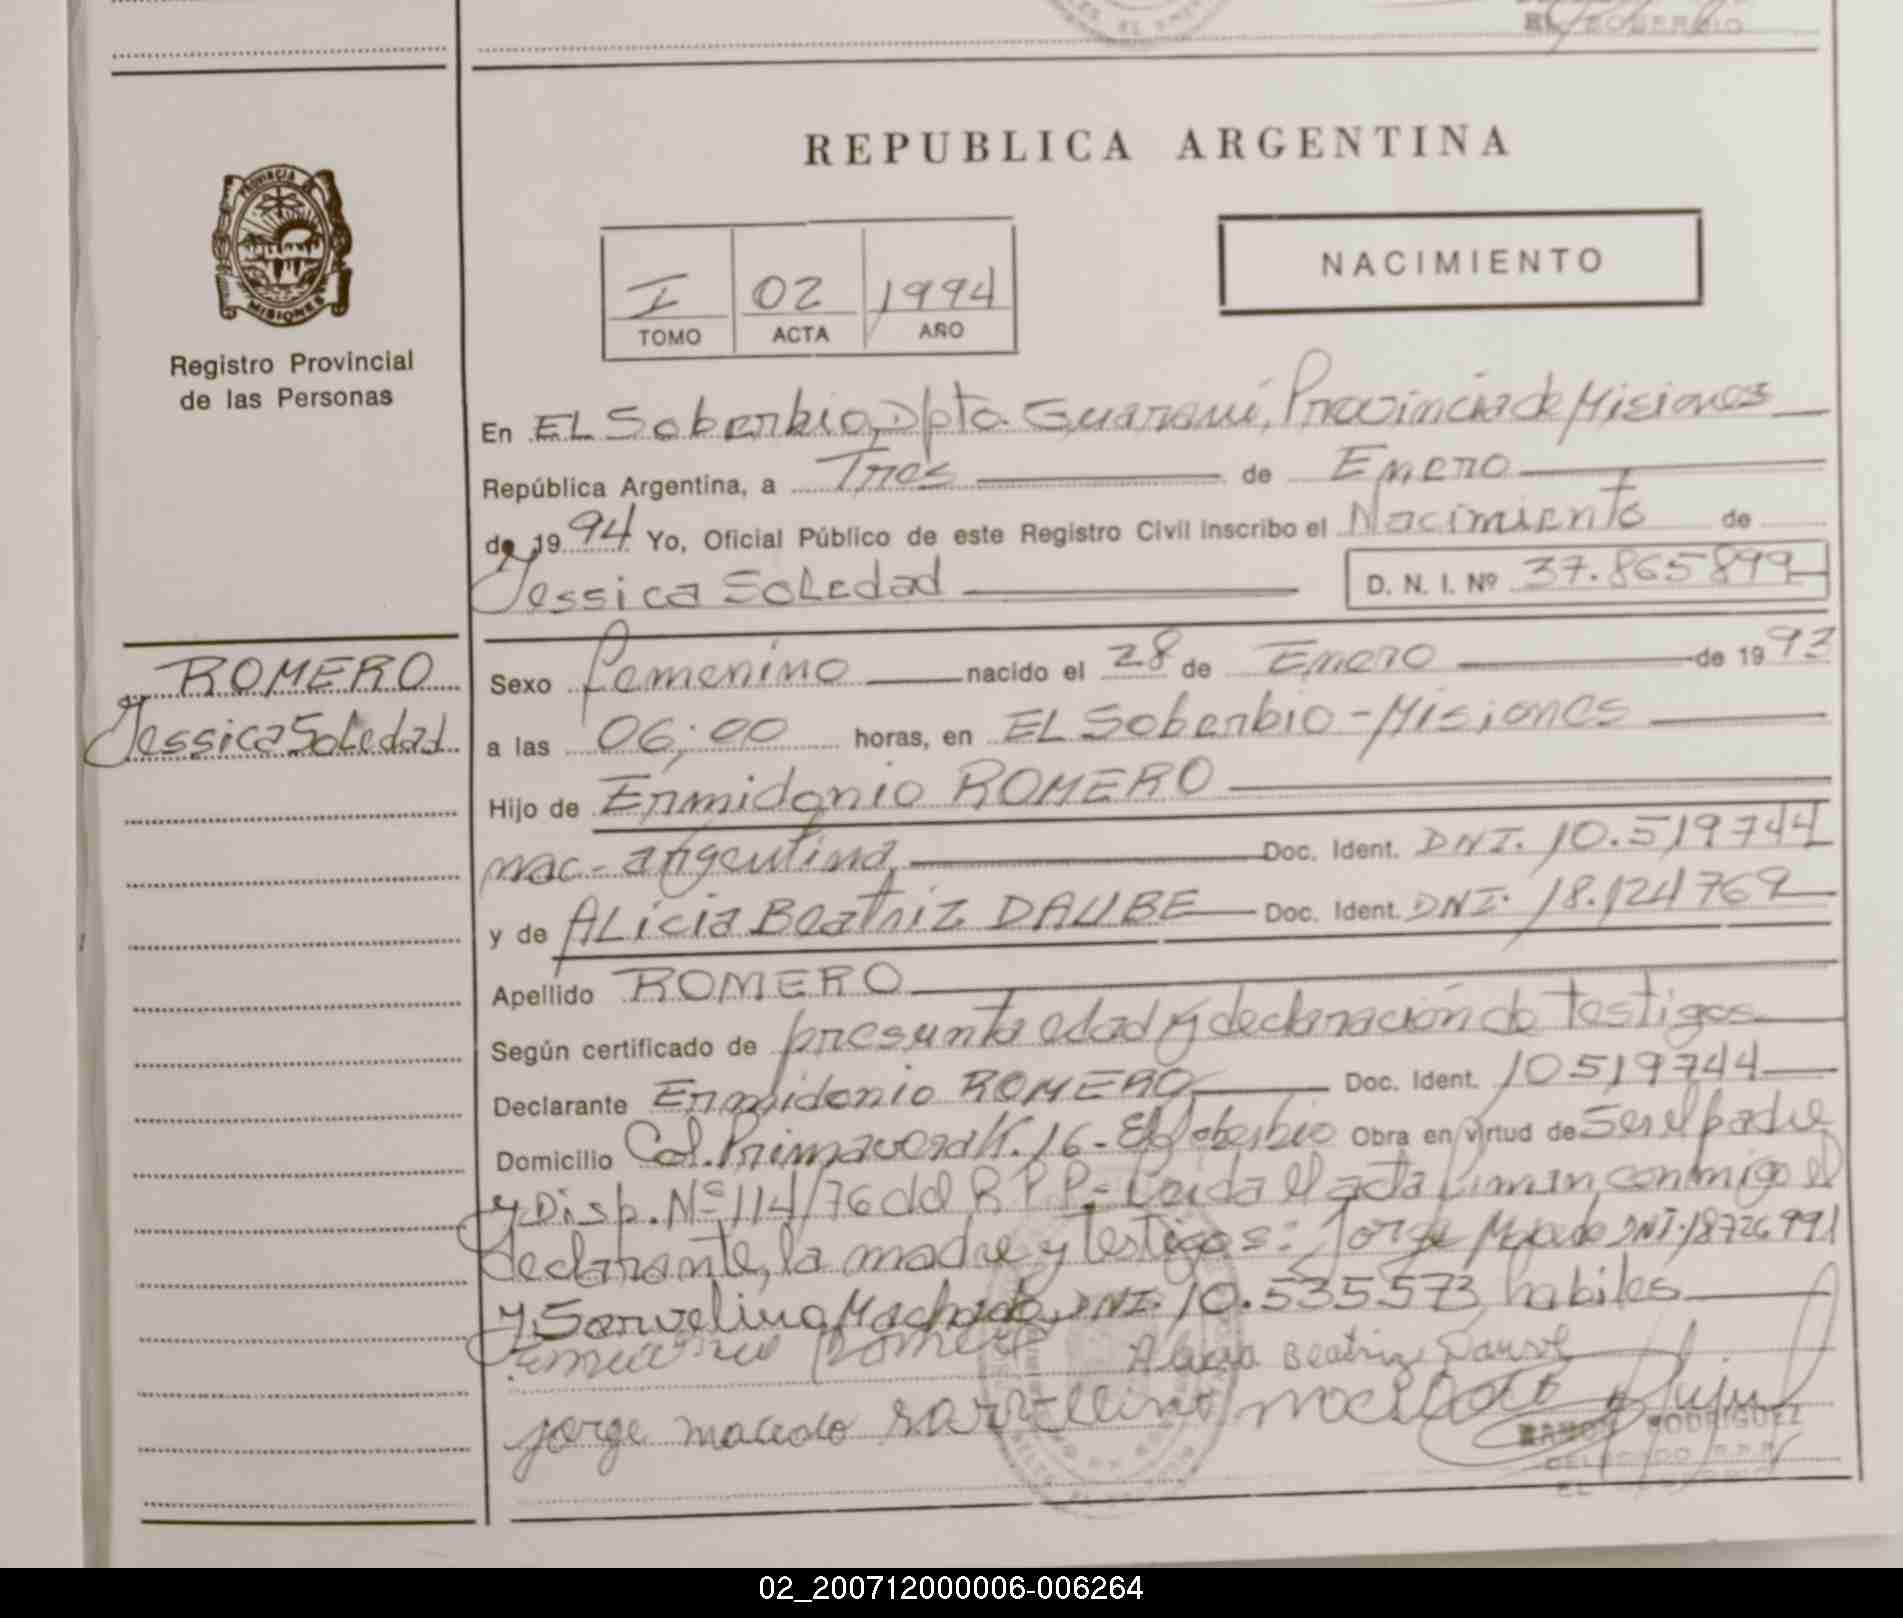 EL SOBERBIO
REPUBLICA ARGENTINA
PROVINCIA DE
MISIONES
Registro Provincial
de las Personas
I 02 1994
TOMO ACTA AÑO
NACIMIENTO
En EL Soberbio, Dpto. Guaraní, Provincia de Misiones
República Argentina, a Tres de Enero
de 1994 Yo, Oficial Público de este Registro Civil inscribo el Nacimiento de
Jessica Soledad D. N. I. Nº 37.865899
ROMERO
Jessica Soledad
Sexo femenino nacido el 28 de Enero de 1993
a las 06;00 horas, en EL Soberbio - Misiones
Hijo de Ermidonio ROMERO
nac- argentina, Doc. Ident. DNI. 10.519744
y de ALicia Beatriz DAUBE Doc. Ident. DNI. 18.124769
Apellido ROMERO
Según certificado de presunta edad y declaración de testigos
Declarante Ermidonio ROMERO Doc. Ident. 10519744
Domicilio Col. Primavera K. 16 - El Soberbio Obra en virtud de Ser el padre
y Disp. Nº 114/76 del R P P.- Leida el acta firman conmigo el
declarante, la madre y testigos: Jorge Macedo DNI. 18726991
y Sarvelino Machado, DNI. 10.535573, habiles
Romero Alicia Beatriz Dauve
jorge macedo sarvelino machado
RAMON RODRIGUEZ
DELEGADO R.P.P.
EL SOBERBIO
02_200712000006-006264